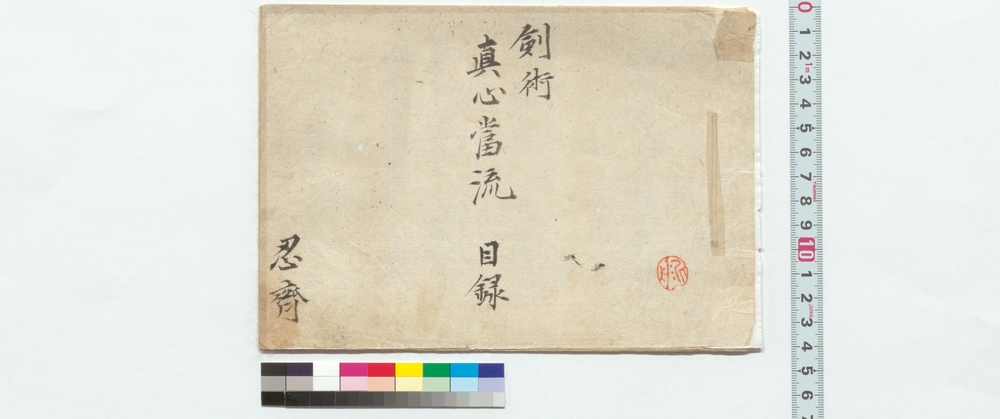 剣術
真心當流 目録
忍齋
0 1 2 3 4 5 6 7 8 9 10 1 2 3 4 5 6 7